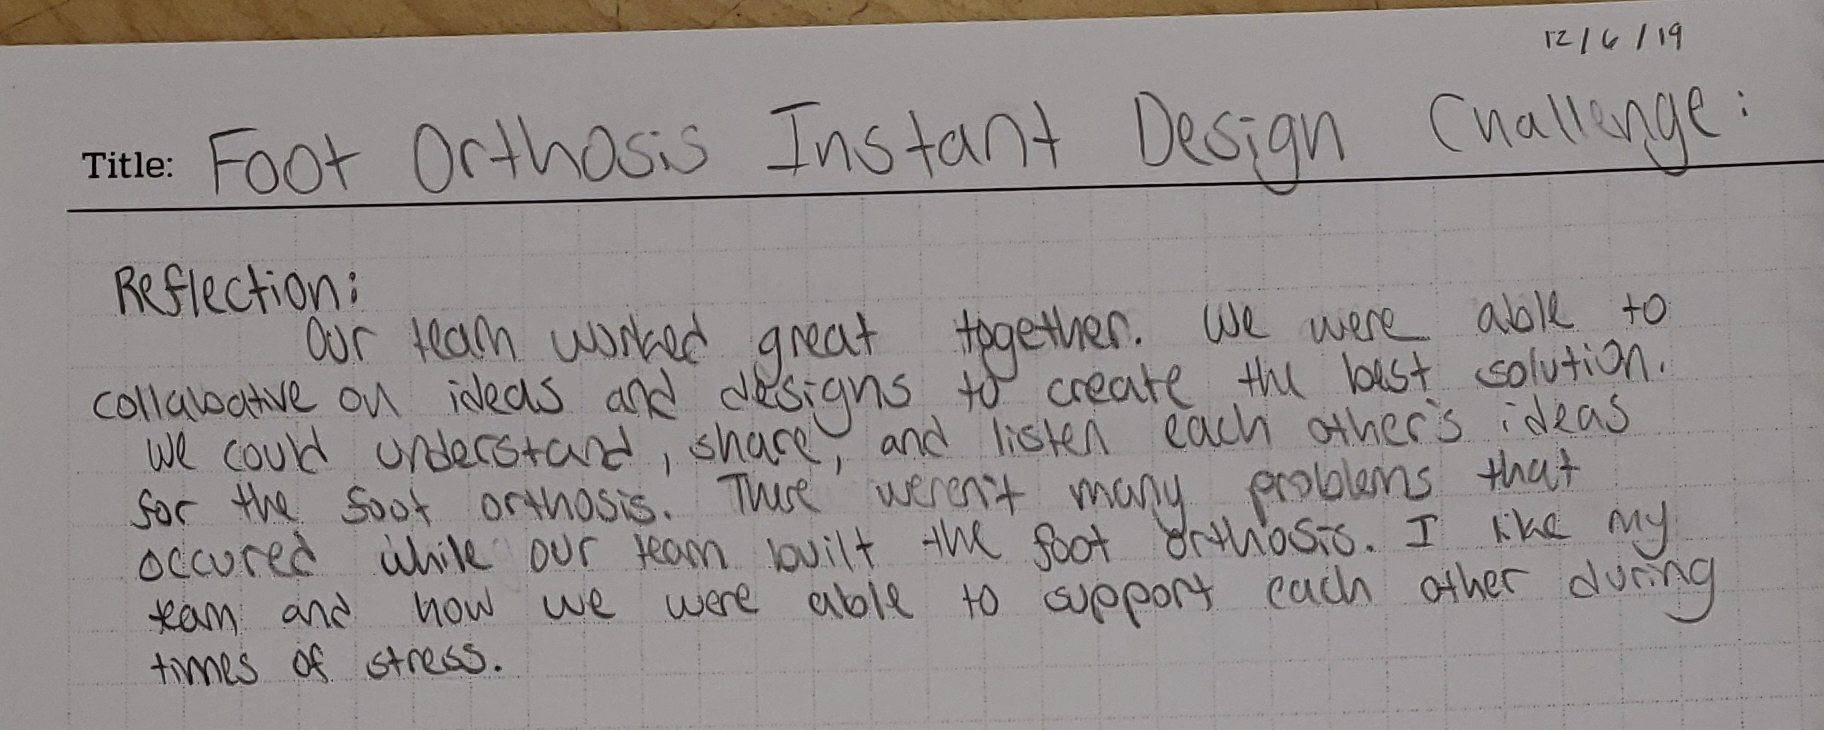 12/6/19
Title: Foot Orthosis Instant Design Challenge:
Reflection:
Our team worked great together. We were able to
collabative on ideas and designs to create the best solution.
We could understand, share, and listen each other's ideas
for the foot orthosis. There weren't many problems that
occured while our team built the foot orthosis. I like my
team and how we were able to support each other during
times of stress.